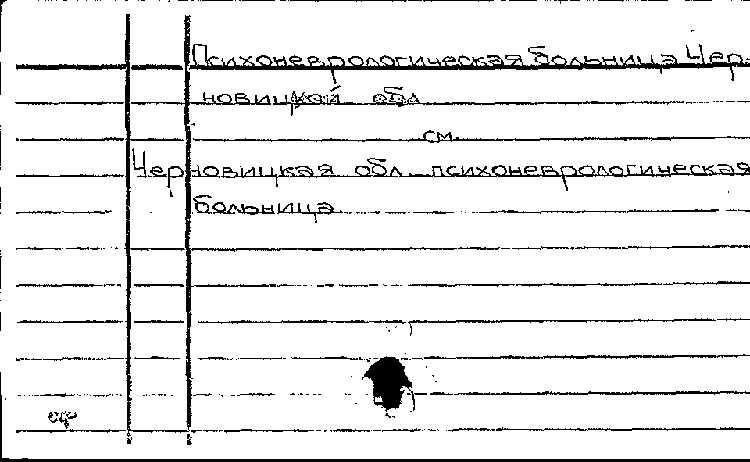 Психоневрологическая больница Чер-
новицкой обл.
см.
Черновицкая обл. психоневрологическая
больница